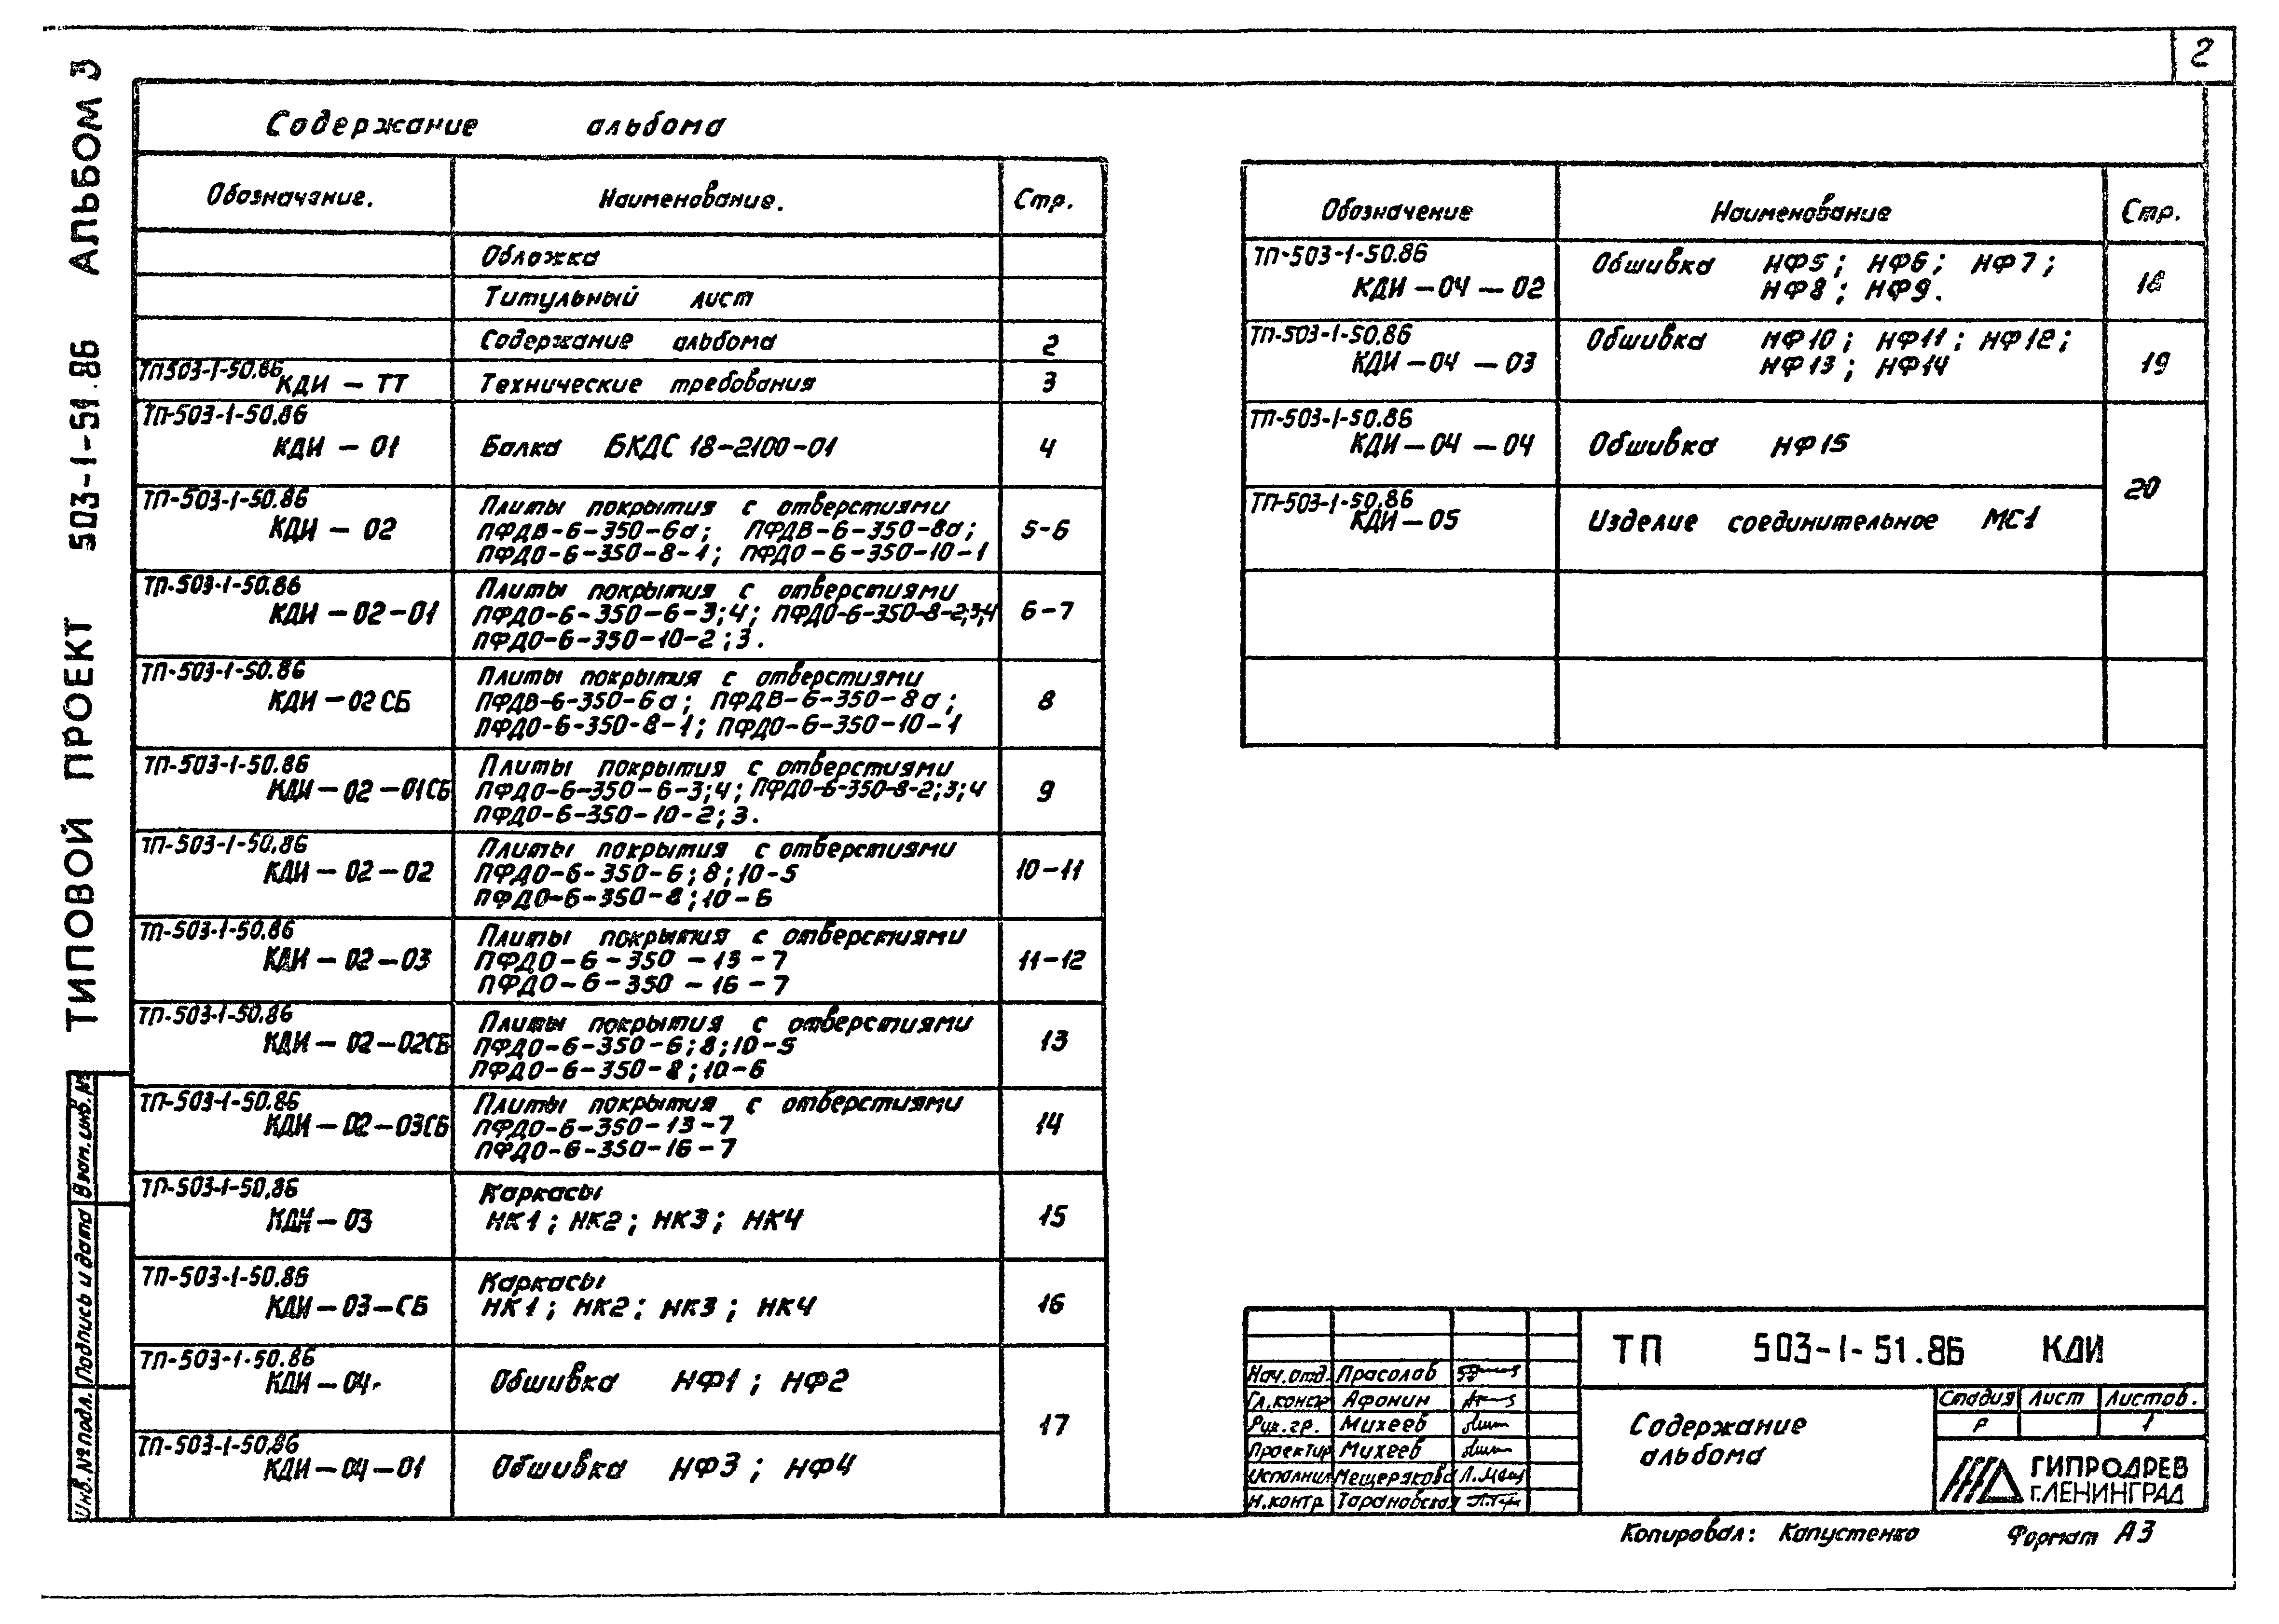 2
ТИПОВОЙ ПРОЕКТ 503-1-51.86 АЛЬБОМ 3
Содержание альбома
Обозначение. Наименование. Стр.
Обложка
Титульный лист
Содержание альбома 2
ТП503-1-50.86
КДИ – ТТ Технические требования 3
ТП-503-1-50.86
КДИ – 01 Балка БКДС 18-2100-01 4
ТП-503-1-50.86
КДИ – 02 5-6
Плиты покрытия с отверстиями
ПФДВ-6-350-6а; ПФДВ-6-350-8а;
ПФДО-6-350-8-1; ПФДО-6-350-10-1
ТП-503-1-50.86
КДИ – 02-01 6-7
Плиты покрытия с отверстиями
ПФДО-6-350-6-3;4; ПФДО-6-350-8-2;3;4
ПФДО-6-350-10-2;3.
ТП-503-1-50.86
КДИ – 02 СБ 8
Плиты покрытия с отверстиями
ПФДВ-6-350-6а; ПФДВ-6-350-8а;
ПФДО-6-350-8-1; ПФДО-6-350-10-1
ТП-503-1-50.86
КДИ – 02 – 01СБ 9
Плиты покрытия с отверстиями
ПФДО-6-350-6-3;4; ПФДО-6-350-8-2;3;4
ПФДО-6-350-10-2;3.
ТП-503-1-50.86
КДИ – 02 – 02 10-11
Плиты покрытия с отверстиями
ПФДО-6-350-6;8;10-5
ПФДО-6-350-8;10-6
ТП-503-1-50.86
КДИ – 02 – 03 11-12
Плиты покрытия с отверстиями
ПФДО-6-350-13-7
ПФДО-6-350-16-7
ТП-503-1-50.86
КДИ – 02 – 02СБ 13
Плиты покрытия с отверстиями
ПФДО-6-350-6;8;10-5
ПФДО-6-350-8;10-6
ТП-503-1-50.86
КДИ – 02 – 03СБ 14
Плиты покрытия с отверстиями
ПФДО-6-350-13-7
ПФДО-6-350-16-7
ТП-503-1-50.86
КДИ – 03 15
Каркасы
НК1; НК2; НК3; НК4
ТП-503-1-50.86
КДИ – 03 – СБ 16
Каркасы
НК1; НК2; НК3; НК4
ТП-503-1-50.86
КДИ – 04 Обшивка НФ1; НФ2
17
ТП-503-1-50.86
КДИ – 04 – 01 Обшивка НФ3; НФ4
Обозначение Наименование Стр.
ТП-503-1-50.86
КДИ – 04 – 02 18
Обшивка НФ5; НФ6; НФ7;
НФ8; НФ9.
ТП-503-1-50.86
КДИ – 04 – 03 19
Обшивка НФ10; НФ11; НФ12;
НФ13; НФ14
ТП-503-1-50.86
КДИ – 04 – 04 Обшивка НФ15
20
ТП-503-1-50.86
КДИ – 05 Изделие соединительное МС1
Взам.инв.№
Подпись и дата
Инв.№ подл.
ТП 503-1-51.86 КДИ
Нач.отд. Прасолов
Гл.констр Афонин
Рук.гр. Михеев
Проектир Михеев
Исполнил Мещерякова
Н.контр Тарановская
Содержание
альбома
Стадия Лист Листов.
Р 1
ГИПРОДРЕВ
г.ЛЕНИНГРАД
Копировал: Капустенко Формат А3